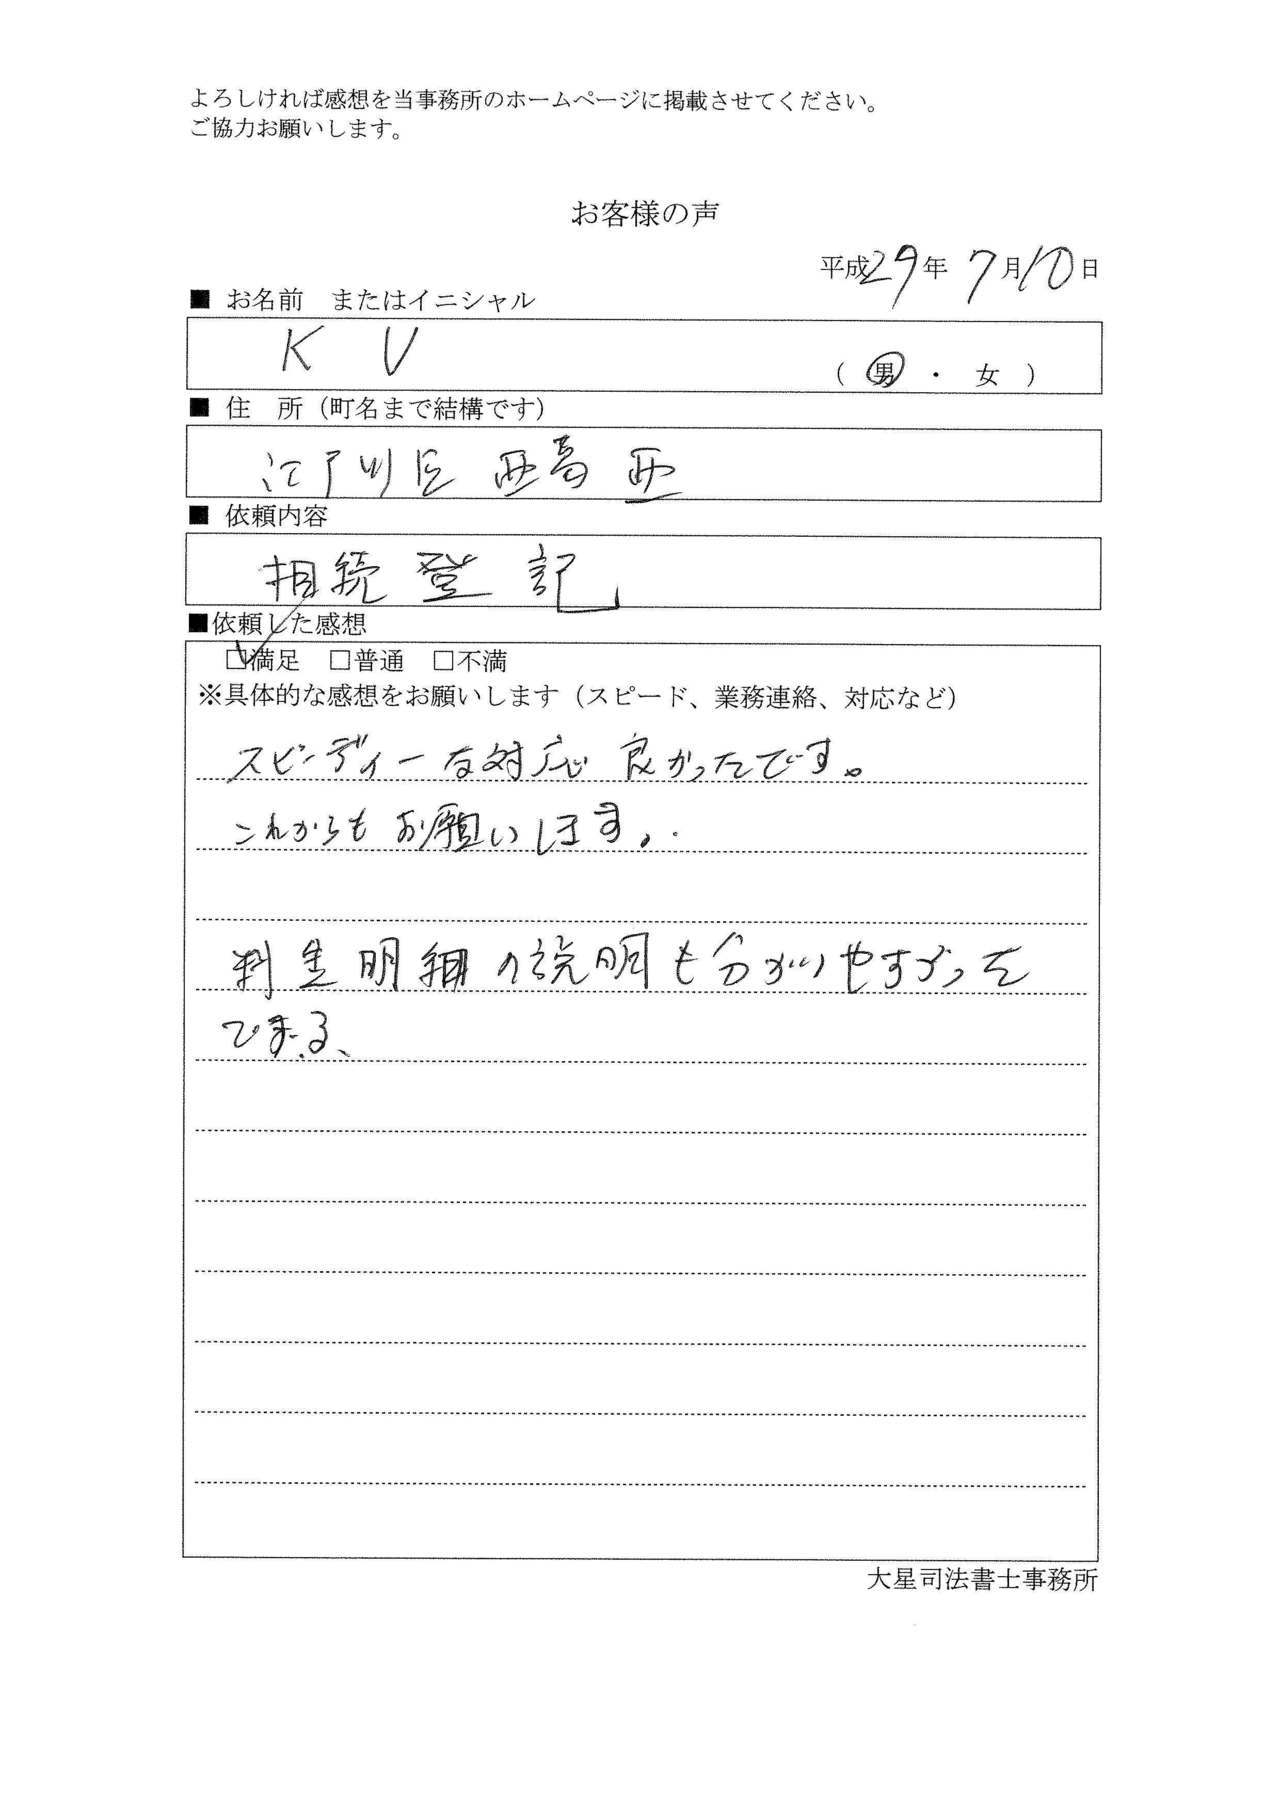 よろしければ感想を当事務所のホームページに掲載させてください。
ご協力お願いします。
お客様の声
平成29年 7月10日
■ お名前 またはイニシャル
K U
( 男 ・ 女 )
■ 住 所（町名まで結構です）
江戸川区 西葛西
■ 依頼内容
相続登記
■依頼した感想
☑満足 □普通 □不満
※具体的な感想をお願いします（スピード、業務連絡、対応など）
スピーディーな対応 良かったです。
これからもお願いします。
料金明細の説明も分かりやすかった
です。
大星司法書士事務所